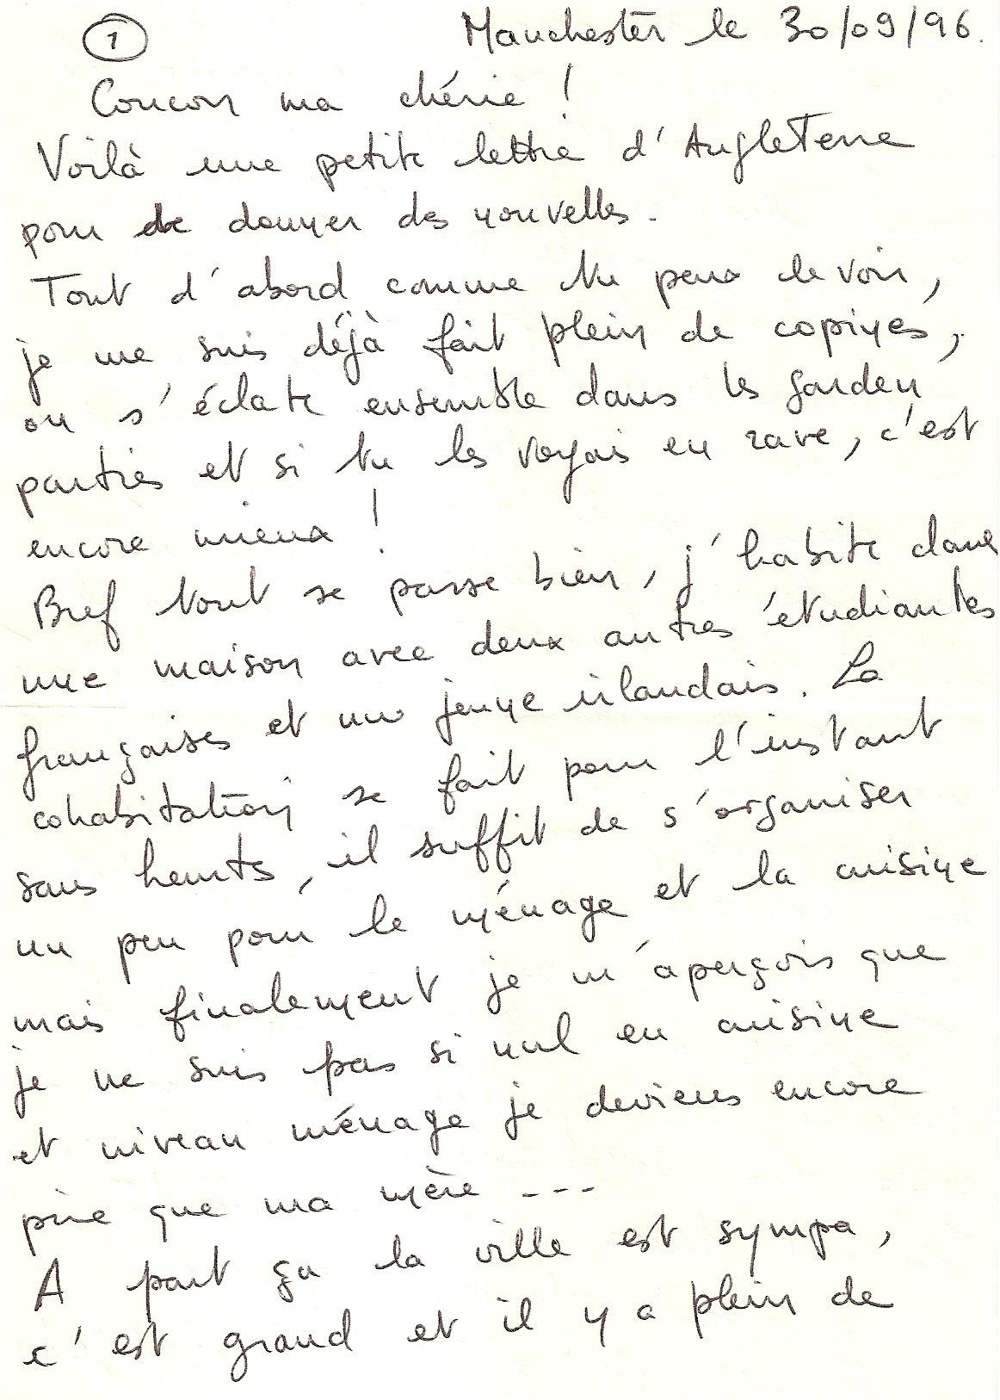 1
Manchester le 30/09/96.
Coucou ma chérie !
Voilà une petite lettre d'Angleterre
pour de donner des nouvelles.
Tout d'abord comme tu peux le voir,
je me suis déjà fait plein de copines,
on s'éclate ensemble dans les garden
parties et si tu les voyais en rave, c'est
encore mieux !
Bref tout se passe bien, j'habite dans
une maison avec deux autres étudiantes
françaises et un jeune irlandais. La
cohabitation se fait pour l'instant
sans heurts, il suffit de s'organiser
un peu pour le ménage et la cuisine
mais finalement je m'aperçois que
je ne suis pas si nul en cuisine
et niveau ménage je deviens encore
pire que ma mère ---
A part ça la ville est sympa,
c'est grand et il y a plein de